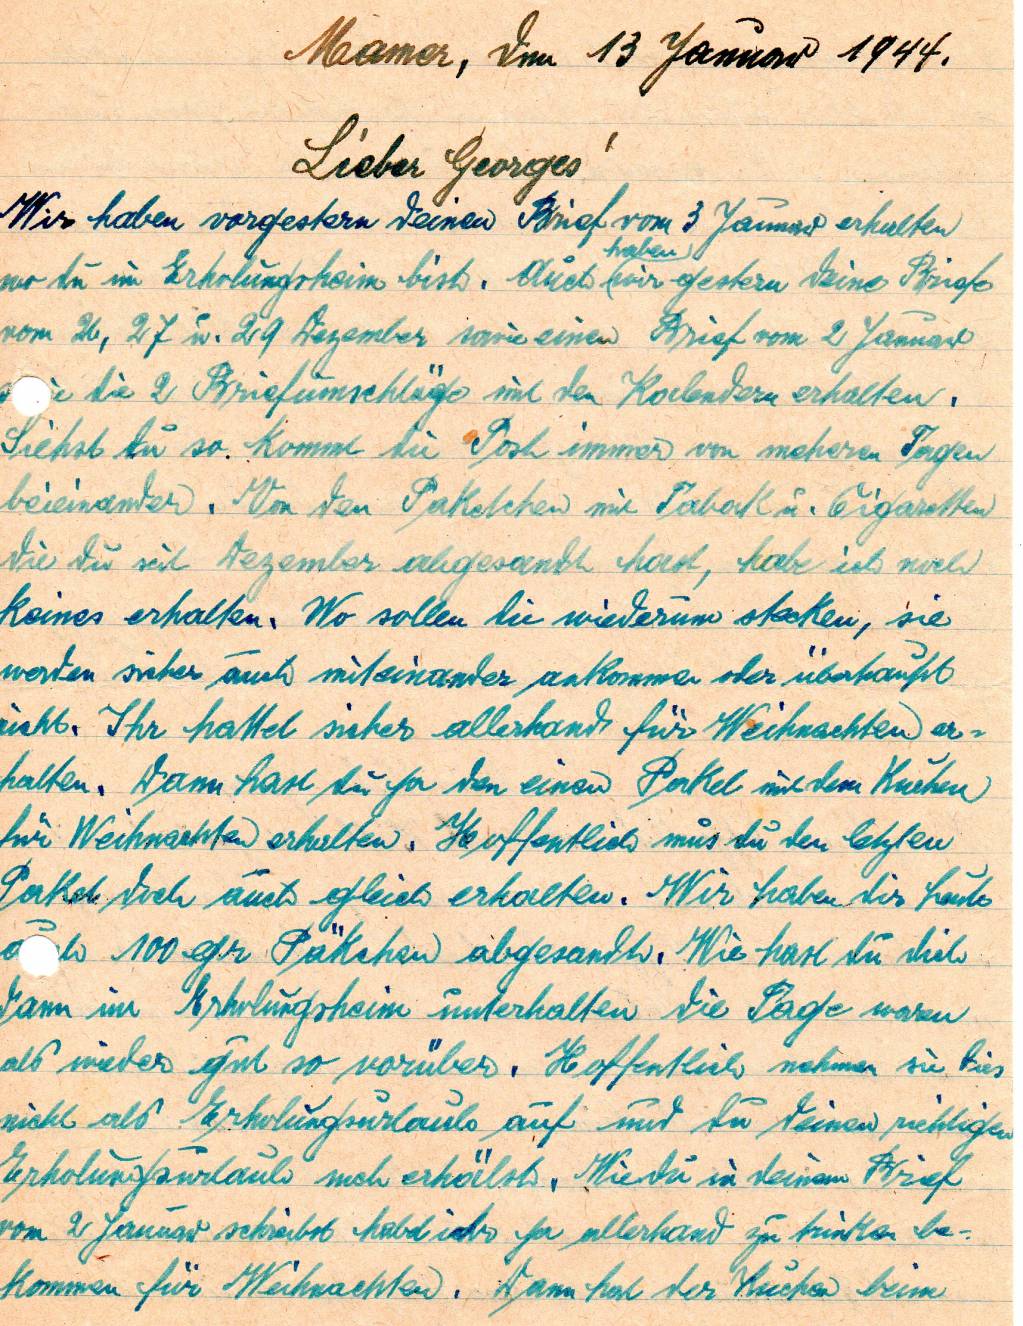 Mamer, den 13 Januar 1944.
Lieber Georges!
Wir haben vorgestern deinen Brief vom 3 Januar erhalten
haben
wo du im Erholungsheim bist. Auch wir gestern deine Briefe
vom 26, 27 u. 29 Dezember sowie einen Brief vom 2 Januar
die 2 Briefumschläge mit den Kalendern erhalten.
Siehst du so kommt die Post immer von meheren Tagen
beieinander. Von den Paketchen mit Tabak u. Cigaretten
die du seit Dezember abgesandt hast, habe ich noch
keines erhalten. Wo sollen die wiederum stecken, sie
werden sicher auch miteinander ankommen oder überhaupt
nicht. Ihr hattet sicher allerhand für Weihnachten er-
halten. Dann hast du ja den einen Paket mit dem Kuchen
für Weihnachten erhalten. Hoffentlich mus du den letzten
Paket doch auch gleich erhalten. Wir haben dir heute
auch 100 gr Päkchen abgesandt. Wie hast du dich
dann im Erholungsheim unterhalten die Tage waren
als wieder gut so vorüber. Hoffentlich nehmen sie dies
nicht als Erholungsurlaub auf und du deinen richtigen
Erholungsurlaub noch erhälst. Wie du in deinem Brief
vom 2 Januar schreibst habt ihr ja allerhand zu trinken be-
kommen für Weihnachten. Dann hat der Kuchen beim